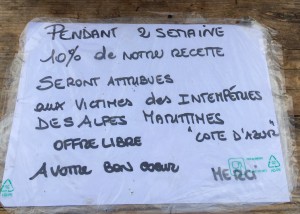 PENDANT 2 SEMAINE
10% de NOTRE RECETTE
SERONT ATTRIBUES
aux VICTIMES des INTEMPÉRIES
DES ALPES MARITIMES
OFFRE LIBRE "COTE D'AZUR"
A VOTRE BON COEUR
MERCI